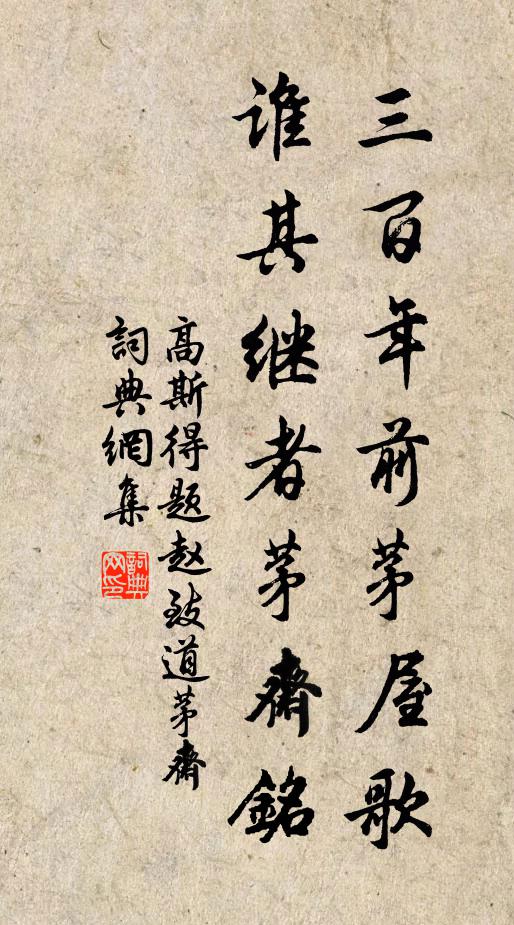 三百年前茅屋歌
谁其继者茅齋銘
高斯得题赵致道茅齋
詞典網集
詞典网印